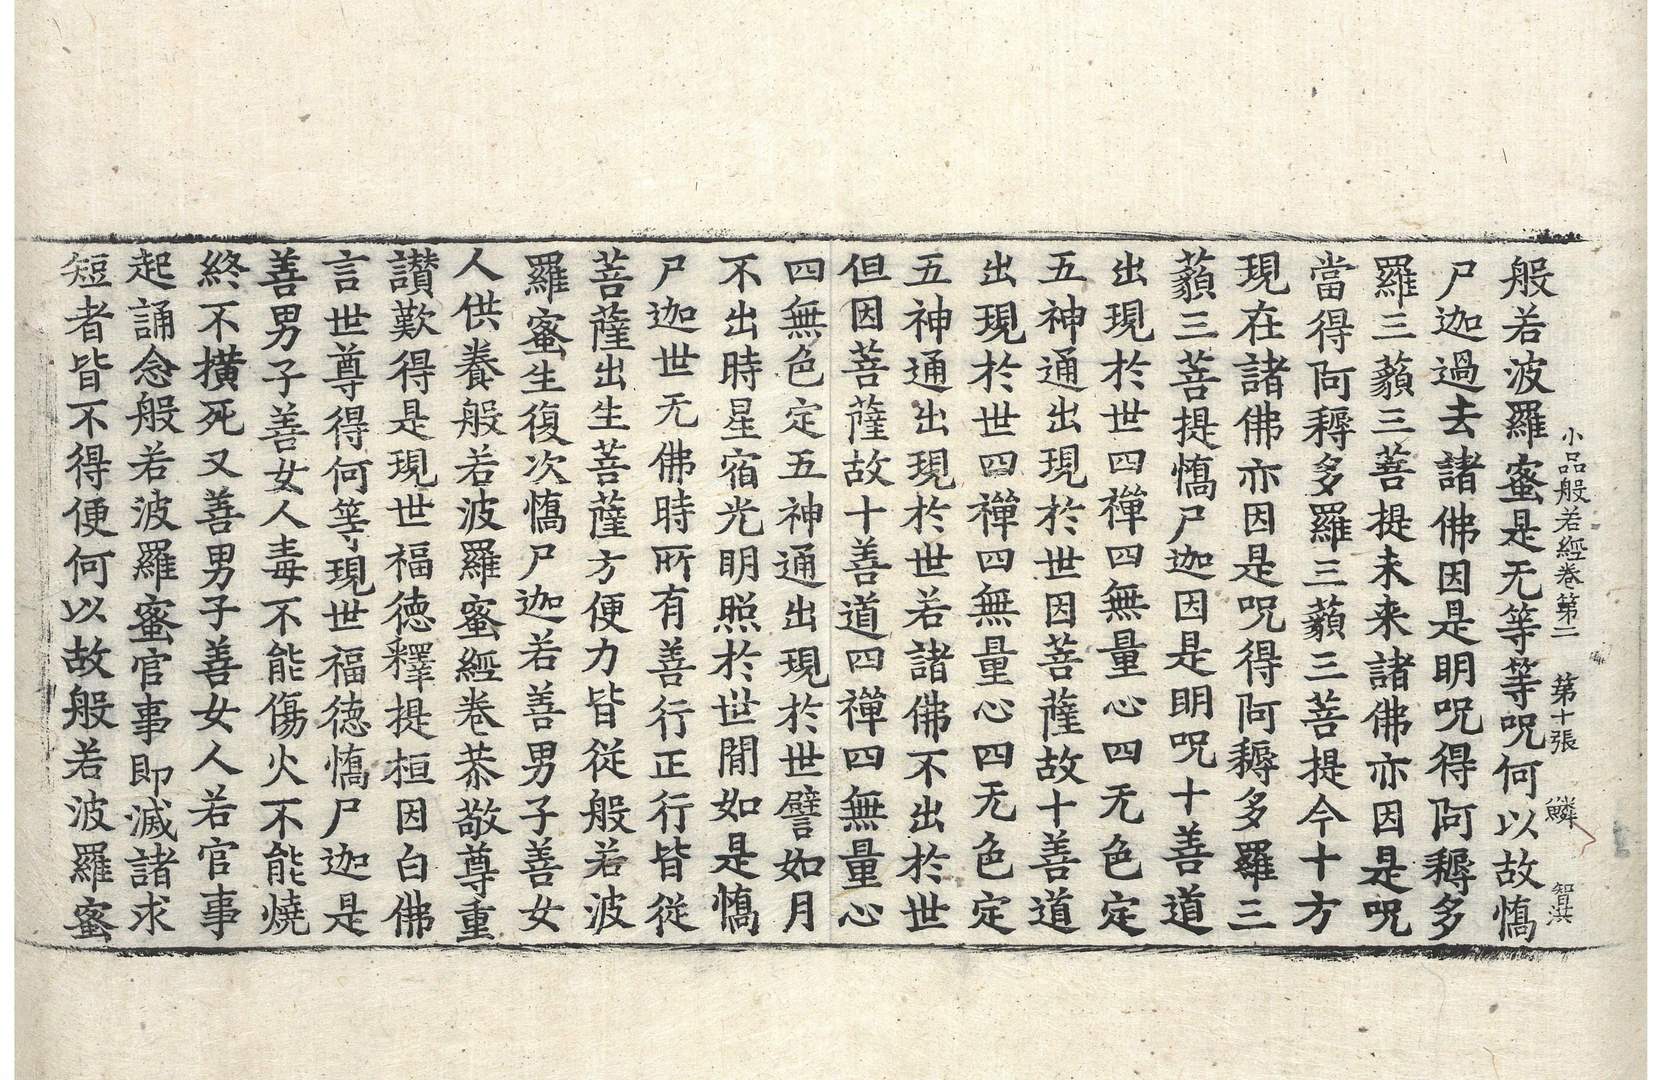 小品般若經卷第二　第十張　鱗　智淇
般若波羅蜜是无等等呪何以故憍
尸迦過去諸佛因是明呪得阿耨多
羅三藐三菩提未来諸佛亦因是呪
當得阿耨多羅三藐三菩提今十方
現在諸佛亦因是呪得阿耨多羅三
藐三菩提憍尸迦因是明呪十善道
出現於世四禪四無量心四无色定
五神通出現於世因菩薩故十善道
出現於世四禪四無量心四无色定
五神通出現於世若諸佛不出於世
但因菩薩故十善道四禪四無量心
四無色定五神通出現於世譬如月
不出時星宿光明照於世間如是憍
尸迦世无佛時所有善行正行皆從
菩薩出生菩薩方便力皆從般若波
羅蜜生復次憍尸迦若善男子善女
人供養般若波羅蜜經卷恭敬尊重
讃歎得是現世福德釋提桓因白佛
言世尊得何等現世福德憍尸迦是
善男子善女人毒不能傷火不能燒
終不橫死又善男子善女人若官事
起誦念般若波羅蜜官事即滅諸求
短者皆不得便何以故般若波羅蜜